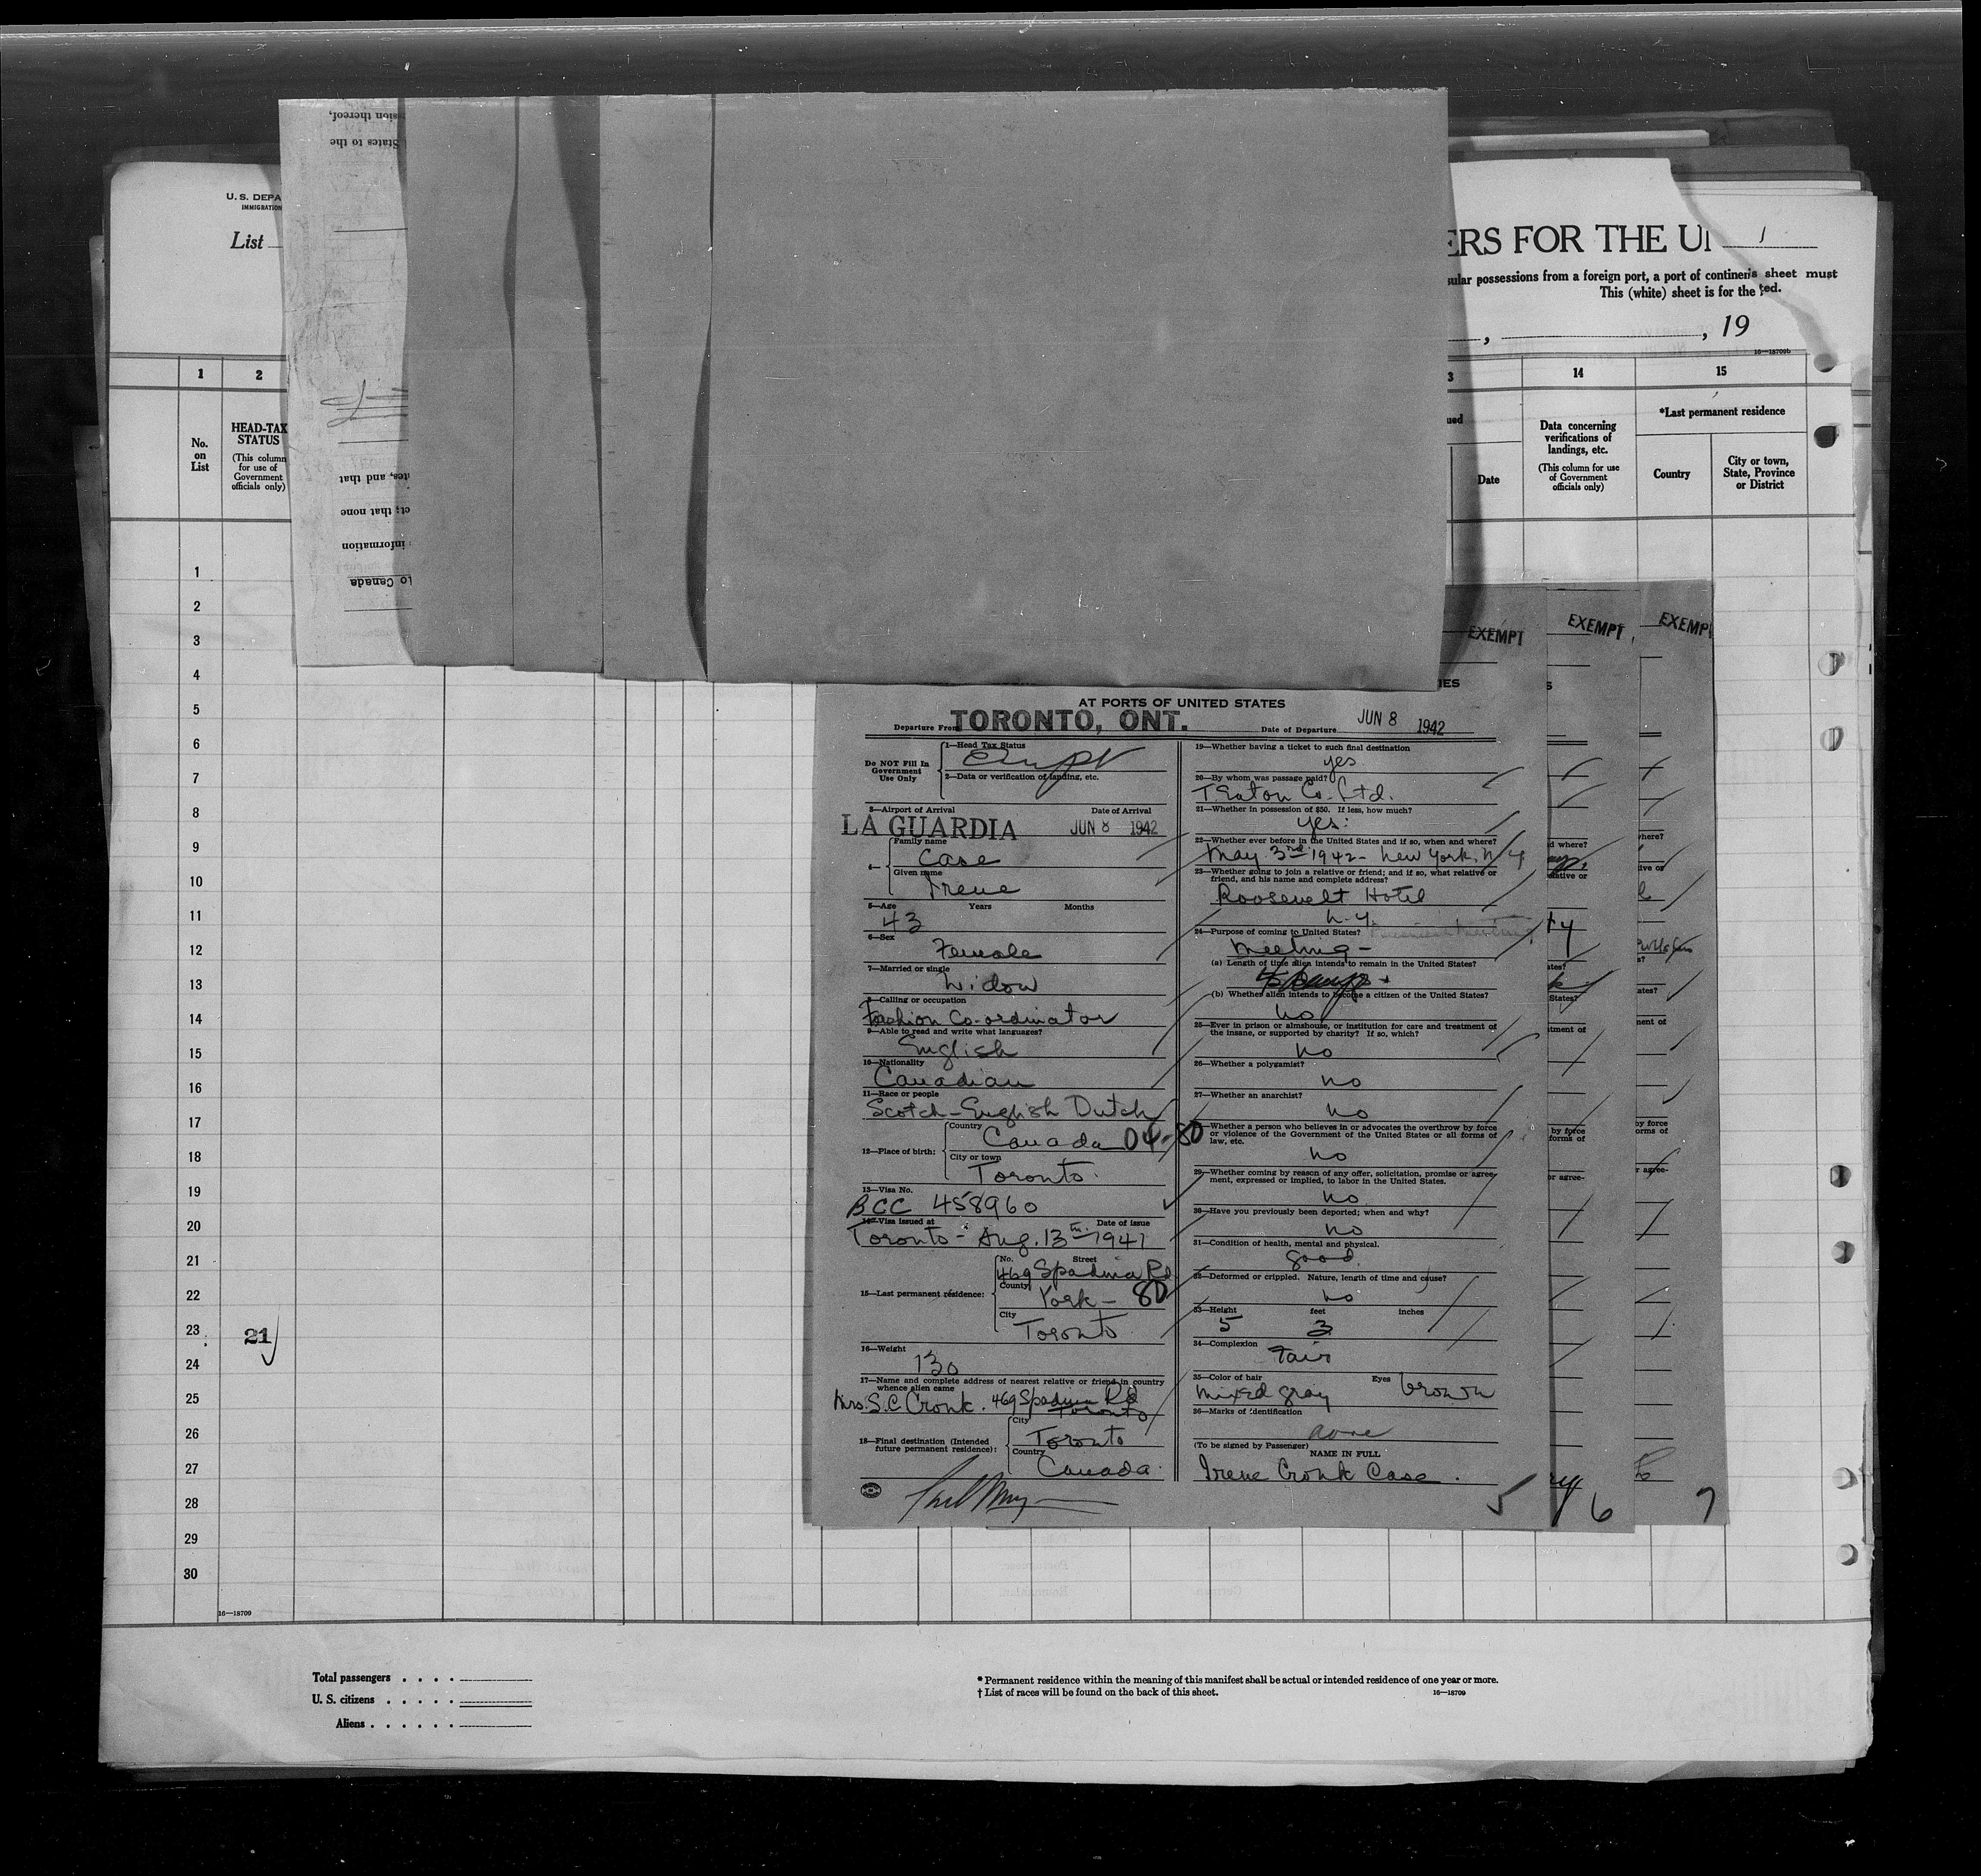 sion thereof,
States to the
tes, and that
ct; that none
information
to Canada
U. S. DEPA
IMMIGRATION
List
ERS FOR THE UN
1
sular possessions from a foreign port, a port of contin
s sheet must
This (white) sheet is for the
ted.
, 19
16—18709b
1
2
3
14
15
No. on List
HEAD-TAX STATUS
(This column for use of Government officials only)
ued
Date
Data concerning verifications of landings, etc.
(This column for use of Government officials only)
*Last permanent residence
Country
City or town, State, Province or District
1
2
3
4
5
6
7
8
9
10
11
12
13
14
15
16
17
18
19
20
21
22
23
21
24
25
26
27
28
29
30
16—18709
EXEMPT
EXEMPT
EXEMPT
IES
S
AT PORTS OF UNITED STATES
Departure From TORONTO, ONT.
Date of Departure JUN 8 1942
Do NOT Fill In Government Use Only
1—Head Tax Status
Exempt
2—Data or verification of landing, etc.
3—Airport of Arrival
Date of Arrival
LA GUARDIA JUN 8 1942
4—
Family name
Case
Given name
Irene
5—Age Years Months
43
6—Sex
Female
7—Married or single
Widow
8—Calling or occupation
Fashion Co-ordinator
9—Able to read and write what languages?
English
10—Nationality
Canadian
11—Race or people
Scotch-English Dutch
12—Place of birth:
Country
Canada 04-80
City or town
Toronto.
13—Visa No.
BCC 458960
14—Visa issued at Date of issue
Toronto - Aug. 13th 1941
15—Last permanent residence:
No. Street
469 Spadina Rd
County
York - 80
City
Toronto
16—Weight
130
17—Name and complete address of nearest relative or friend in country whence alien came
Mrs. S.C. Cronk. 469 Spadina Rd
Toronto
18—Final destination (Intended future permanent residence):
City
Toronto
Country
Canada.
19—Whether having a ticket to such final destination
yes
20—By whom was passage paid?
T. Eaton Co. Ltd.
21—Whether in possession of $50. If less, how much?
yes.
22—Whether ever before in the United States and if so, when and where?
May 3rd 1942 - New York. N Y
23—Whether going to join a relative or friend; and if so, what relative or friend, and his name and complete address?
Roosevelt Hotel
N.Y.
24—Purpose of coming to United States?
Meeting -
(a) Length of time alien intends to remain in the United States?
(b) Whether alien intends to become a citizen of the United States?
no
25—Ever in prison or almshouse, or institution for care and treatment of the insane, or supported by charity? If so, which?
no
26—Whether a polygamist?
no
27—Whether an anarchist?
no
Whether a person who believes in or advocates the overthrow by force or violence of the Government of the United States or all forms of law, etc.
no
29—Whether coming by reason of any offer, solicitation, promise or agreement, expressed or implied, to labor in the United States.
no
30—Have you previously been deported; when and why?
no
31—Condition of health, mental and physical.
good.
32—Deformed or crippled. Nature, length of time and cause?
no
33—Height feet inches
5 3
34—Complexion
Fair
35—Color of hair Eyes
mixed gray brown
36—Marks of identification
none
(To be signed by Passenger)
NAME IN FULL
Irene Cronk Case.
5
6
7
Total passengers . . . .
U. S. citizens . . . . .
Aliens . . . . . .
* Permanent residence within the meaning of this manifest shall be actual or intended residence of one year or more.
† List of races will be found on the back of this sheet.
16—18709